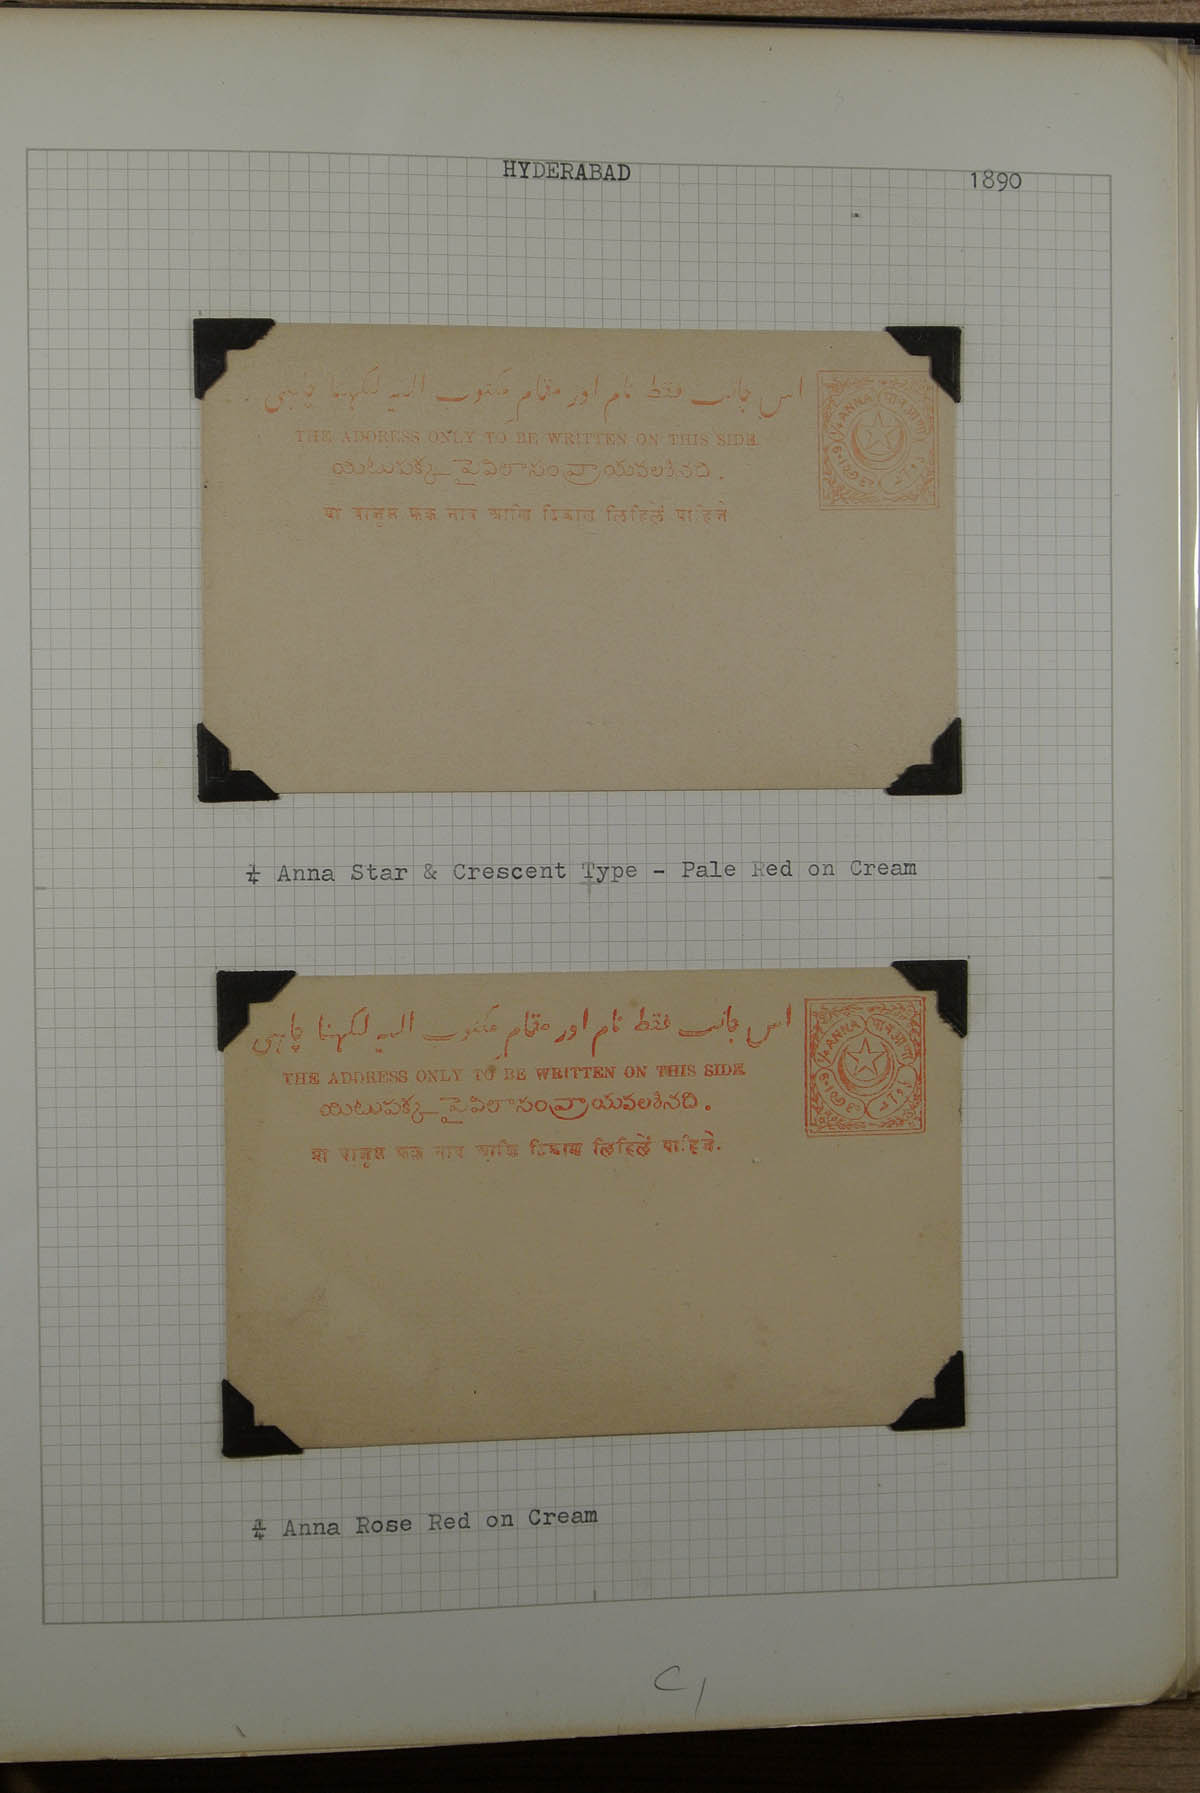 HYDERABAD
1890
اس جانب فقط نام اور مقام مکتوب الیہ لکہنا چاہی
THE ADDRESS ONLY TO BE WRITTEN ON THIS SIDE
యిటుపక్క పైవిలాసంవ్రాయవలశినది.
या बाजूस फक्त नाव आणि ठिकाण लिहिलें पाहिजे
¼ ANNA
पाव आणा
¼ Anna Star & Crescent Type - Pale Red on Cream
اس جانب فقط نام اور مقام مکتوب الیہ لکہنا چاہی
THE ADDRESS ONLY TO BE WRITTEN ON THIS SIDE
యిటుపక్క పైవిలాసంవ్రాయవలశినది.
या बाजूस फक्त नाव आणि ठिकाण लिहिलें पाहिजे.
¼ ANNA
पाव आणा
¼ Anna Rose Red on Cream
C1